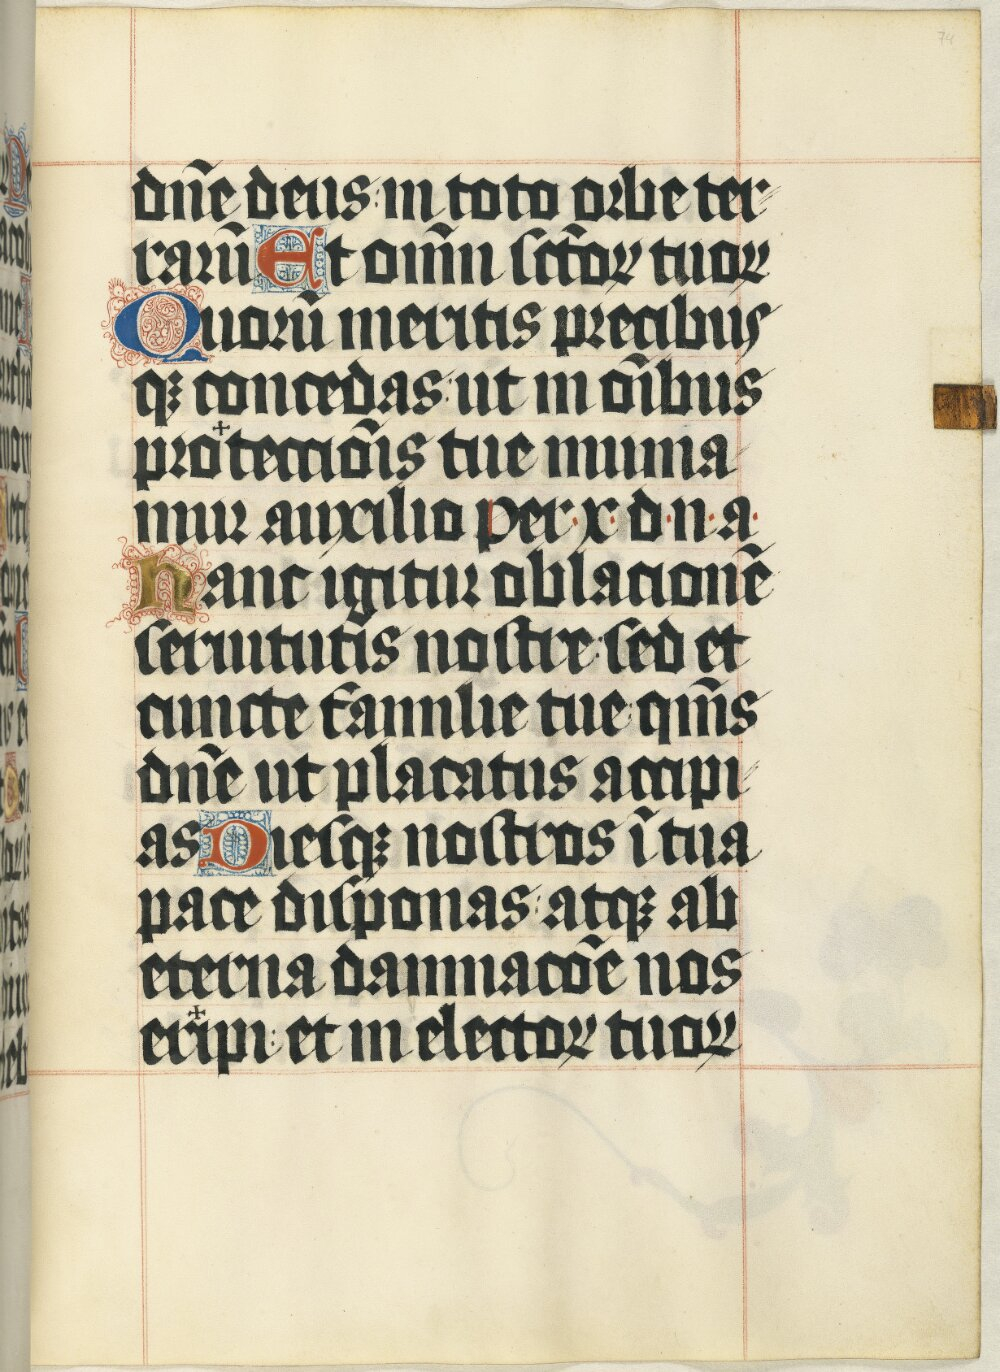 74
dñe deus: in toto orbe ter-
rarū Et om̄n sctōꝝ tuoꝝ
Quorū meritis precibus
qꝫ concedas: ut in oībus
protecciōis tue munia-
mur auxilio per·x·d·n·a·
hanc igitur oblacionē
seruitutis nostre: sed et
cuncte familie tue: qm̄s
dñe ut placatus accipi-
as Diesqꝫ nostros ī tua
pace disponas: atqꝫ ab
eterna damnacōe nos
eripi: et in electoꝝ tuoꝝ